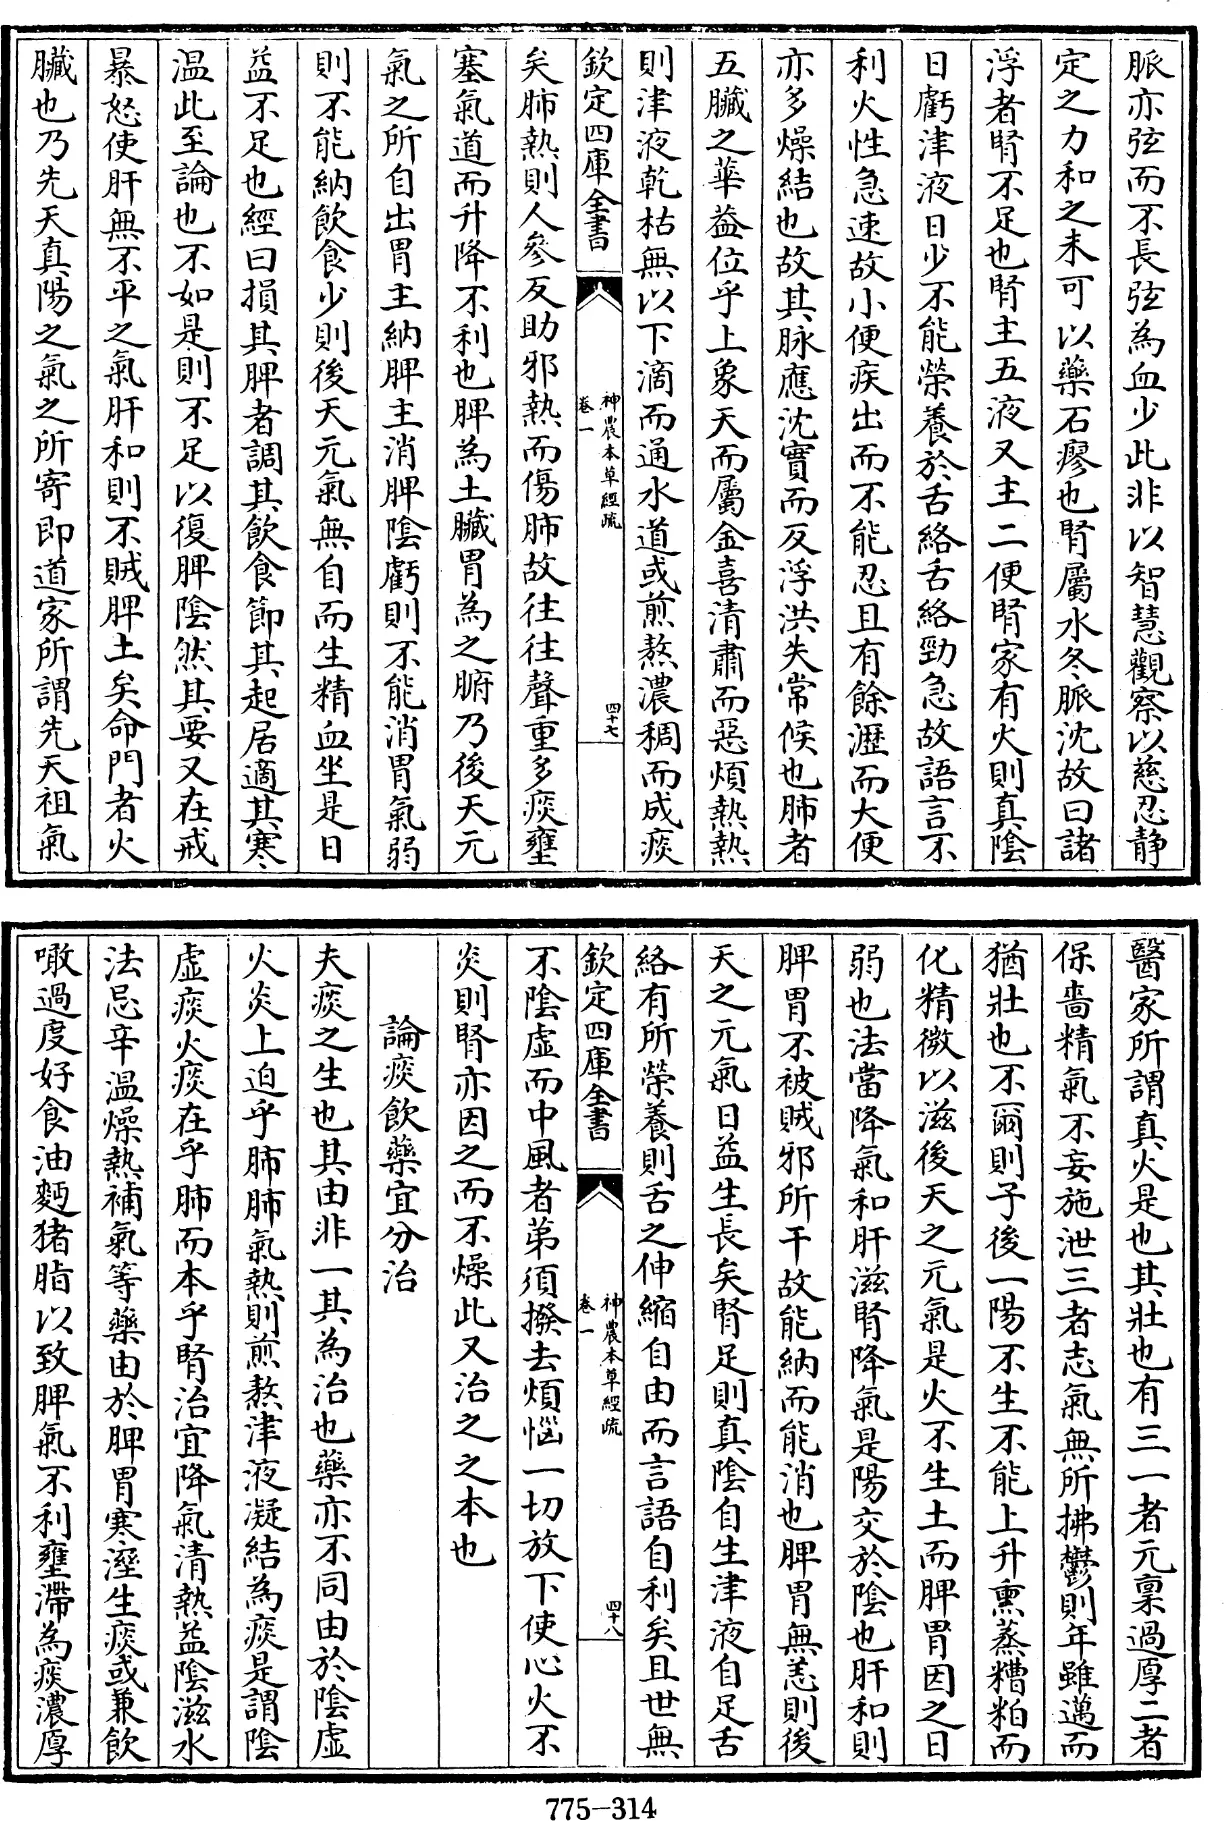 脈亦弦而不長弦為血少此非以智慧觀察以慈忍靜
定之力和之未可以藥石瘳也腎屬水冬脈沈故曰諸
浮者腎不足也腎主五液又主二便腎家有火則真陰
日虧津液日少不能榮養於舌絡舌絡勁急故語言不
利火性急速故小便疾出而不能忍且有餘瀝而大便
亦多燥結也故其脉應沈實而反浮洪失常候也肺者
五臟之華葢位乎上象天而屬金喜清肅而惡煩熱熱
則津液乾枯無以下滴而通水道或煎熬濃稠而成痰
欽定四庫全書
神農本草經疏
卷一
四十七
矣肺熱則人參反助邪熱而傷肺故往往聲重多痰壅
塞氣道而升降不利也脾為土臟胃為之腑乃後天元
氣之所自出胃主納脾主消脾陰虧則不能消胃氣弱
則不能納飲食少則後天元氣無自而生精血坐是日
益不足也經曰損其脾者調其飲食節其起居適其寒
温此至論也不如是則不足以復脾陰然其要又在戒
暴怒使肝無不平之氣肝和則不賊脾土矣命門者火
臟也乃先天真陽之氣之所寄即道家所謂先天祖氣
醫家所謂真火是也其壯也有三一者元稟過厚二者
保嗇精氣不妄施泄三者志氣無所拂鬱則年雖邁而
猶壯也不爾則子後一陽不生不能上升熏蒸糟粕而
化精微以滋後天之元氣是火不生土而脾胃因之日
弱也法當降氣和肝滋腎降氣是陽交於陰也肝和則
脾胃不被賊邪所干故能納而能消也脾胃無恙則後
天之元氣日益生長矣腎足則真陰自生津液自足舌
絡有所榮養則舌之伸縮自由而言語自利矣且世無
欽定四庫全書
神農本草經疏
卷一
四十八
不陰虛而中風者弟須撥去煩惱一切放下使心火不
炎則腎亦因之而不燥此又治之之本也
論痰飲藥宜分治
夫痰之生也其由非一其為治也藥亦不同由於陰虛
火炎上迫乎肺肺氣熱則煎熬津液凝結為痰是謂陰
虛痰火痰在乎肺而本乎腎治宜降氣清熱益陰滋水
法忌辛温燥熱補氣等藥由於脾胃寒溼生痰或兼飲
噉過度好食油麪猪脂以致脾氣不利壅滯為痰濃厚
775-314